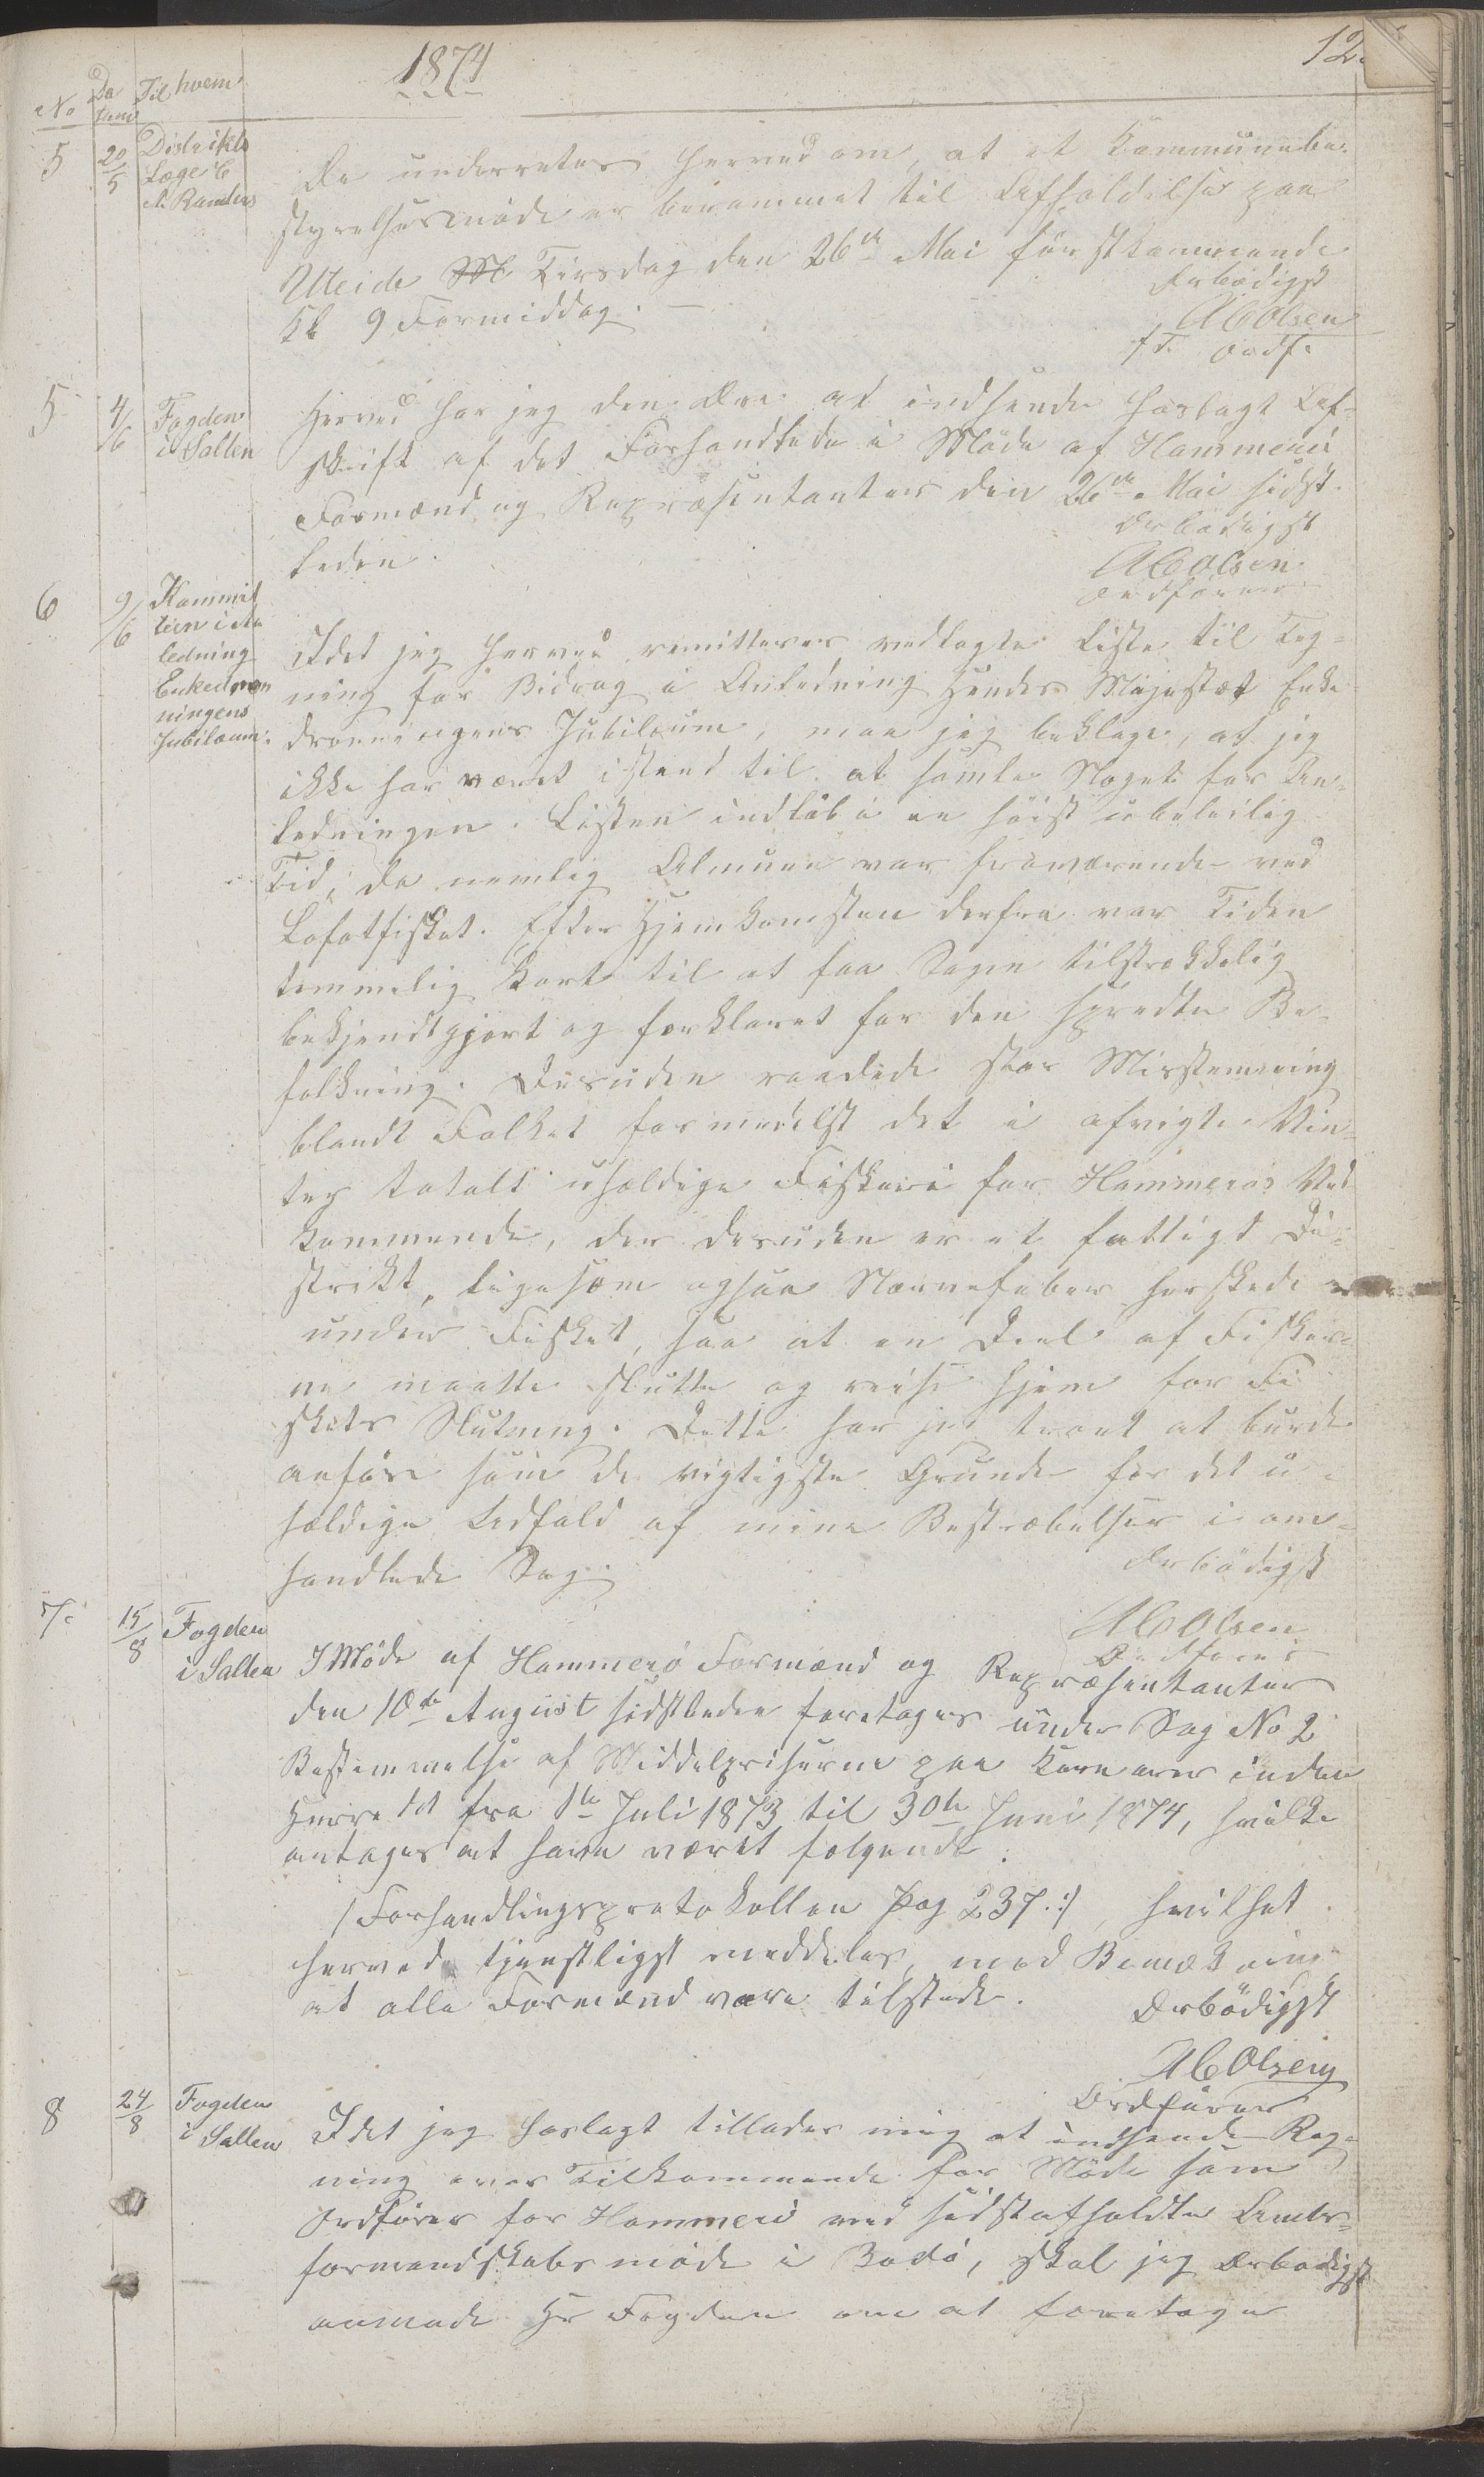 1874
12.
No Da Til hvem
tum
5 20/5 Distrikts
Læge C
A. Randers
De underrettes herved om, at et Kommunebe-
styrelsesmøde er berammet til Afholdelse paa
Uteide Tirsdag den 26de Mai førstkommende
Kl 9 Formiddag. —
Ærbødigst
A C Olsen
f. T. Ordf.
5 4/6 Fogden
i Salten
Herved har jeg den Ære at indsende hoslagt Af-
skrift af det Forhandlede i Møde af Hammerø
Formænd og Repræsentanter den 26de Mai sidst-
leden.
Ærbødigst
A C Olsen
Ordfører
6 9/6 Kommit
teen i An
ledning
Enkedron
ningens
Jubilæum.
Idet jeg herved remitterer vedlagte Liste til Teg-
ning for Bidrag i Anledning Hendes Majestæt Enke
dronningens Jubilæum, maa jeg beklage, at jeg
ikke har været istand til at samle Noget for An-
ledningen. Listen indløb i en høist ubeleilig
Tid, da nemlig Almuen var fraværende ved
Lofotfisket. Efter Hjemkomsten derfra var Tiden
temmelig kort til at faa Sagen tilstrækkelig
bekjendtgjort og forklaret for den spredte Be-
folkning. Desuden raadede stor Misstemning
blandt Folket formedelst det i afvigte Vin-
ter totalt uheldige Fiskeri for Hammerøs Ved
kommende, der desuden er et fattigt Di-
strikt, ligesom ogsaa Nervefeber herskede
under Fisket, saa at en Deel af Fisker-
ne maatte slutte og reise hjem før Fi
skets Slutning. Dette har jeg troet at burde
anføre som de vigtigste Grunde for det u-
heldige Udfald af mine Bestræbelser i om-
handlede Sag.
Ærbødigst
A C Olsen
Ordfører
7. 15/8 Fogden
i Salten
I Møde af Hammerø Formænd og Repræsentanter
den 10de August sidstleden foretoges under Sag No 2
Bestemmelse af Middelpriserne paa Kornvarer inden
Herredet fra 1te Juli 1873 til 30te Juni 1874, hvilke
antages at have været følgende:
/Forhandlingsprotokollen Pag 237.:/, hvilket
herved tjenstligst meddeles, med Bemærkning
at alle Formænd vare tilstede.
Ærbødigst
A C Olsen
Ordfører
8 24/8 Fogden
i Salten
Idet jeg hoslagt tillader mig at indsende Reg-
ning over Tilkommende for Møde som
Ordfører for Hammerø ved sidstafholdte Amts-
formandskabsmøde i Bodø, skal jeg Ærbødigst
anmode Hr Fogden om at foretage